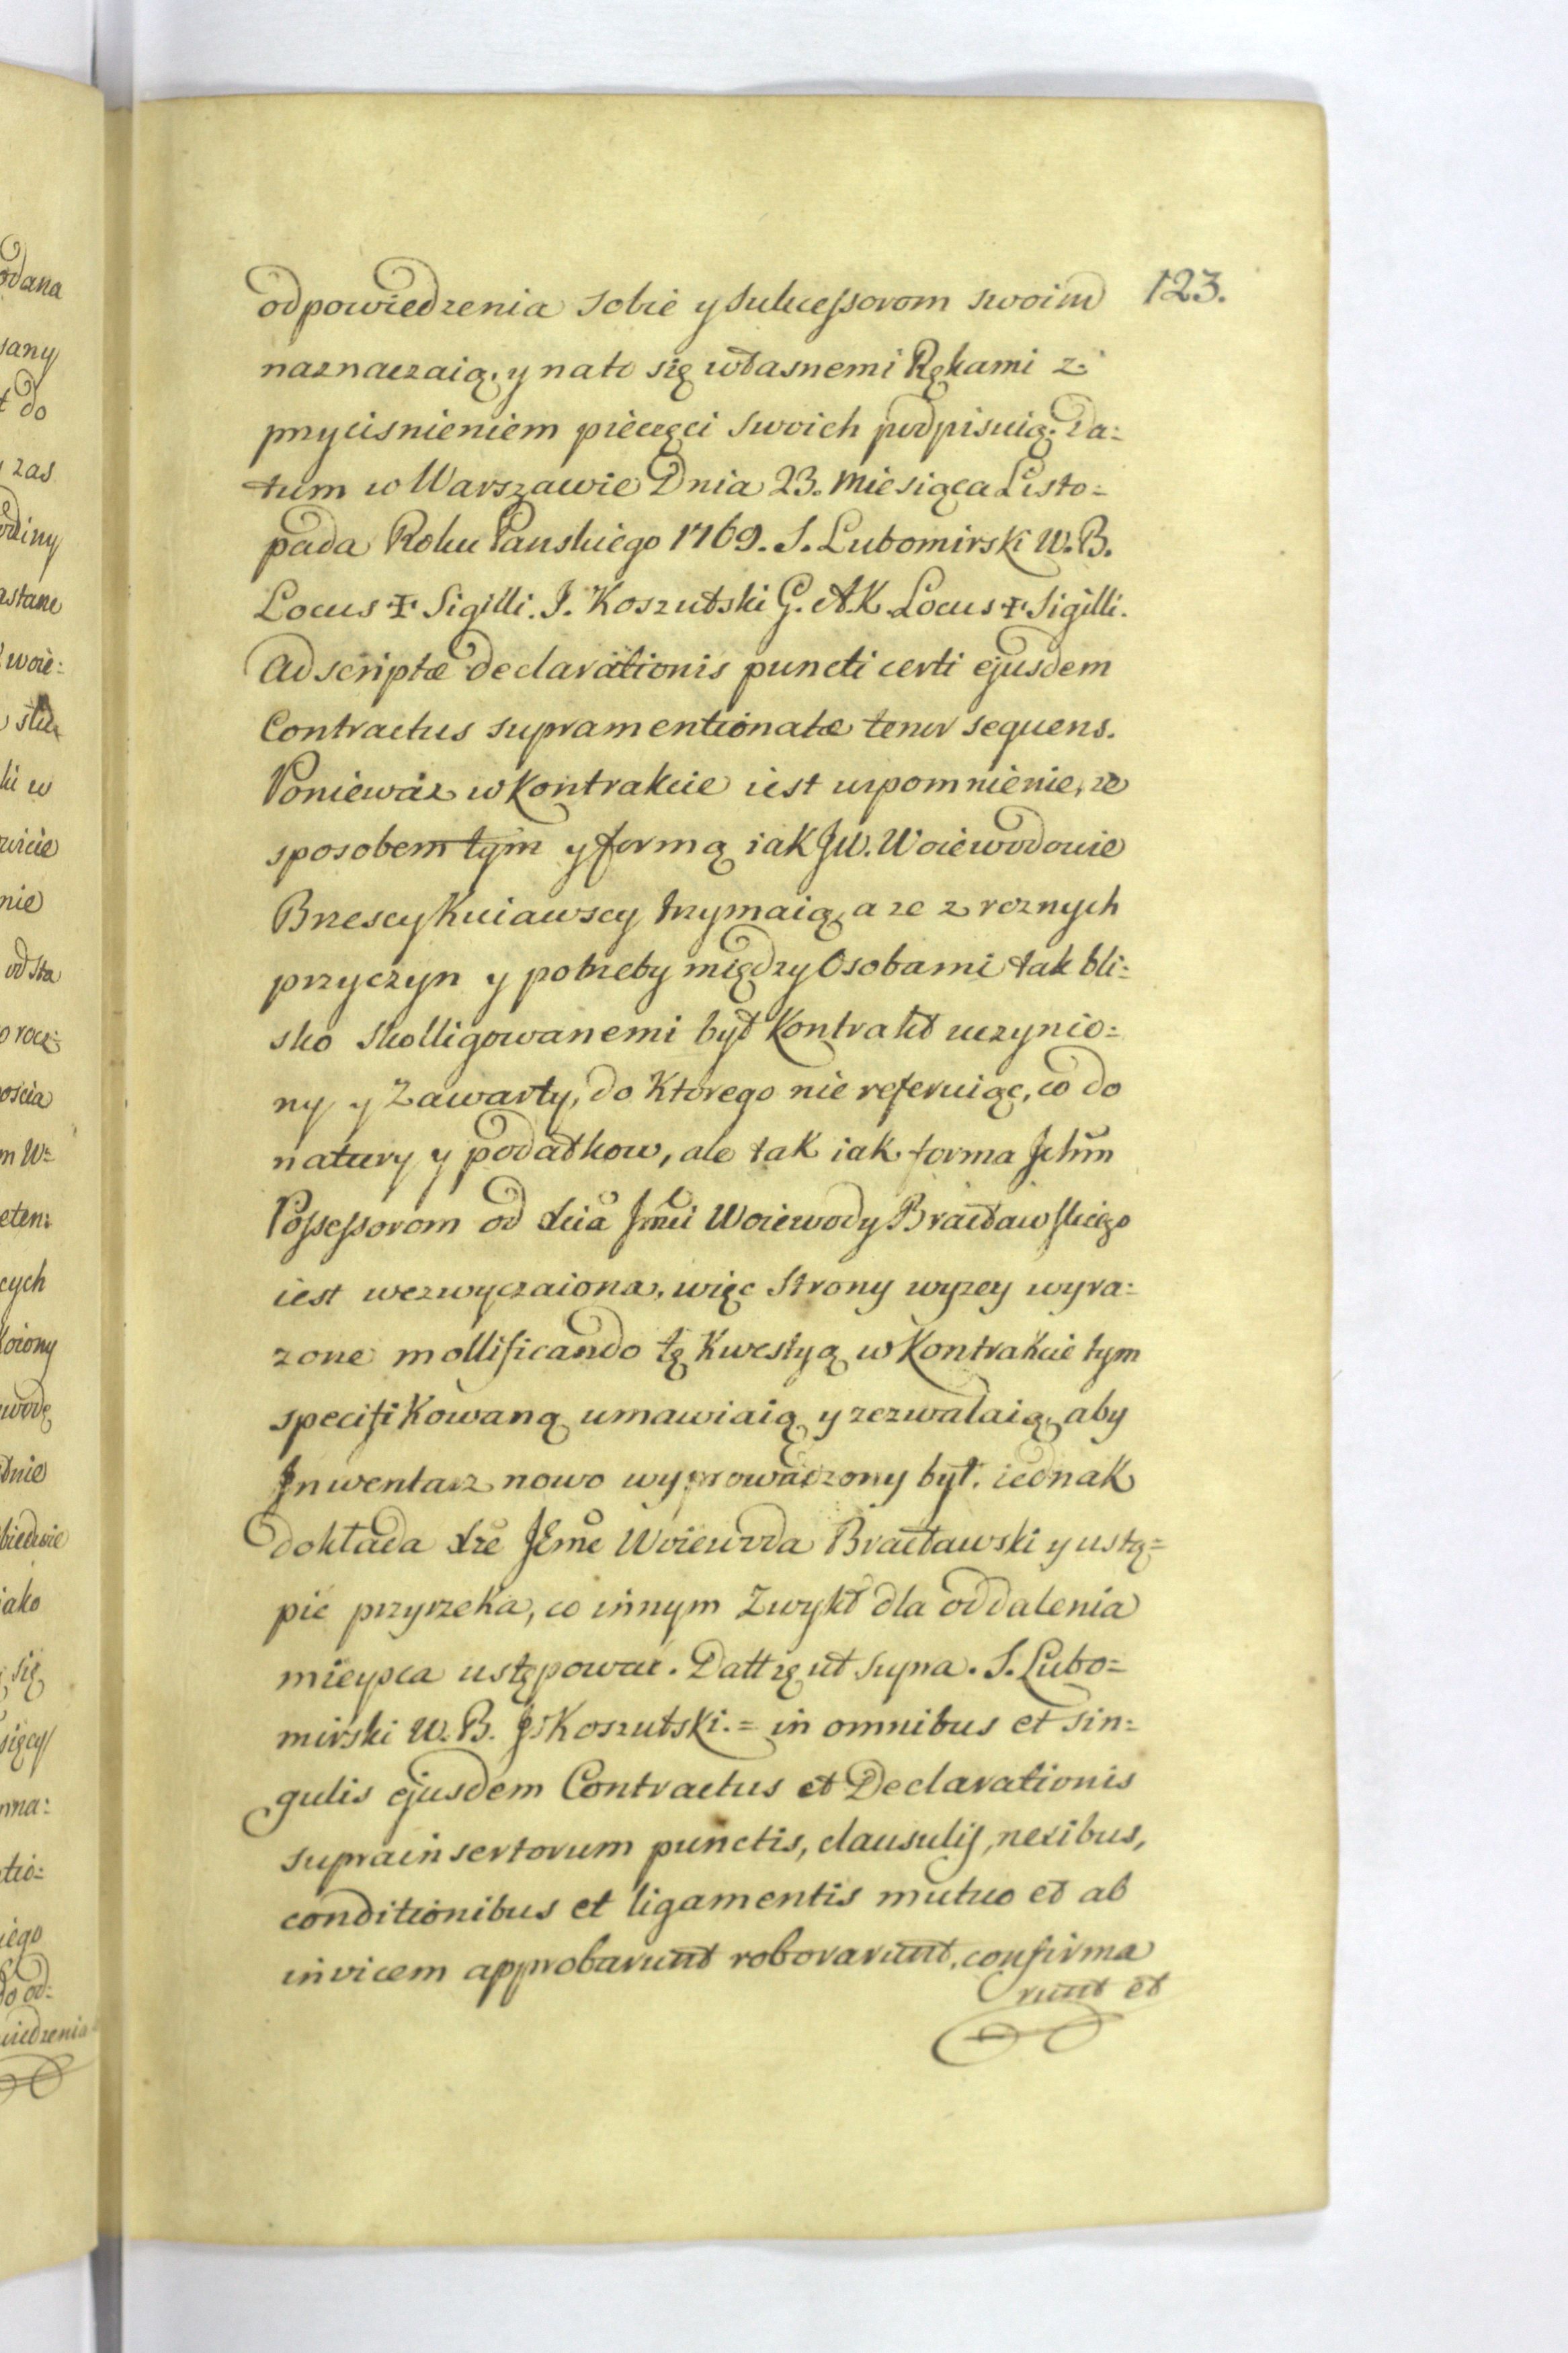 123.
odpowiedzenia sobie y sukcessorom swoim
naznaczaią, y nato się własnemi Rękami z:
przycisnieniem pieczęci swoich podpisuią. Da:
tum w Warszawie Dnia 23. Miesiąca Listo=
pada Roku Panskiego 1769. S. Lubomirski W. B.
Locus ✝ Sigilli. J. Koszutski G. A K. Locus ✝ Sigilli.
Adscriptæ declarationis puncti certi ejusdem
Contractus supramentionatæ tenor sequens.
Ponieważ w Kontrakcie iest wspomnienie, ze
sposobem tym y formą iak JW. Woiewodowie
Brzescy Kuiawscy trzymaią, a ze z roznych
przyczyn y potrzeby między Osobami tak bli:
sko skolligowanemi był Kontrakt uczynio=
ny y zawarty, do Ktorego nie referuiąc, co do
natury y podatkow, ale tak iak forma
Possessorom od Xcia Jmci Woiewody Bracławskiego
iest wezwyczaiona, więc Strony wyzey wyra:
zone mollificando tę Kwestyą w Kontrakcie tym
specifikowaną umawiaią y zezwalaią, aby
Jnwentarz nowo wyprowadzony był. iednak
dokłada Xże JEmc Woiewoda Bracławski y ustą=
pic przyrzeka, co innym zwykł dla oddalenia
mieysca ustępować. Datt ut supra. S. Lubo=
mirski W. B. J. Koszutski. = in omnibus et sin=
gulis ejusdem Contractus et Declarationis
suprainsertorum punctis, clausulis, nexibus,
conditionibus et ligamentis mutuo et ab
invicem approbarunt roborarunt, confirma
runt et
odana
sany
t do
zas
odziny
astane
woie:
ki w
nie
od sta
oscia
m W:
eten:
cych
koiony
wodę
iako
się
nna:
tio:
iego
do od:
wiedzenia